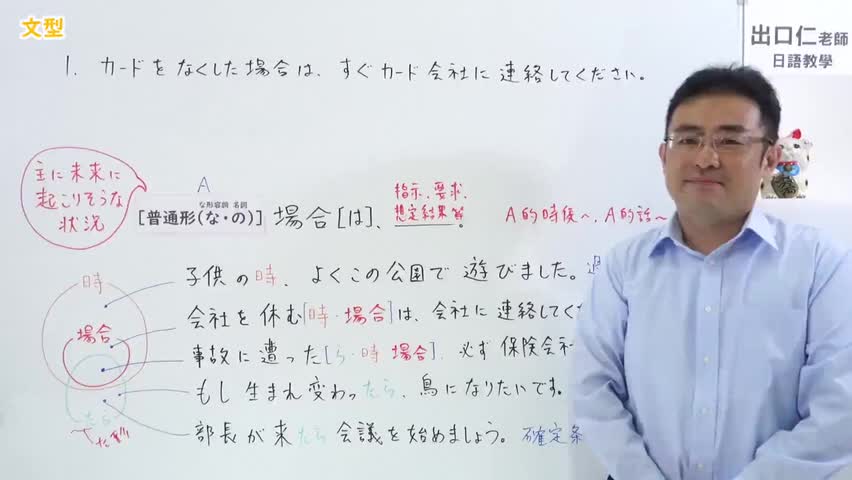 文型
出口仁老師
日語教學
1. カードをなくした場合は、すぐカード会社に連絡してください。
主に未来に
起こりそうな
状況
A
な形容詞 名詞
[普通形(な・の)] 場合[は]、
指示、要求、
想定結果 等。
A的時候~、A的話~
時
場合
たら
子供の時、よくこの公園で遊びました。過
会社を休む[時・場合]は、会社に連絡してくだ
事故に遭った[ら・時 場合]、必ず保険会社
もし生まれ変わったら、鳥になりたいです。
部長が来たら会議を始めましょう。確定条